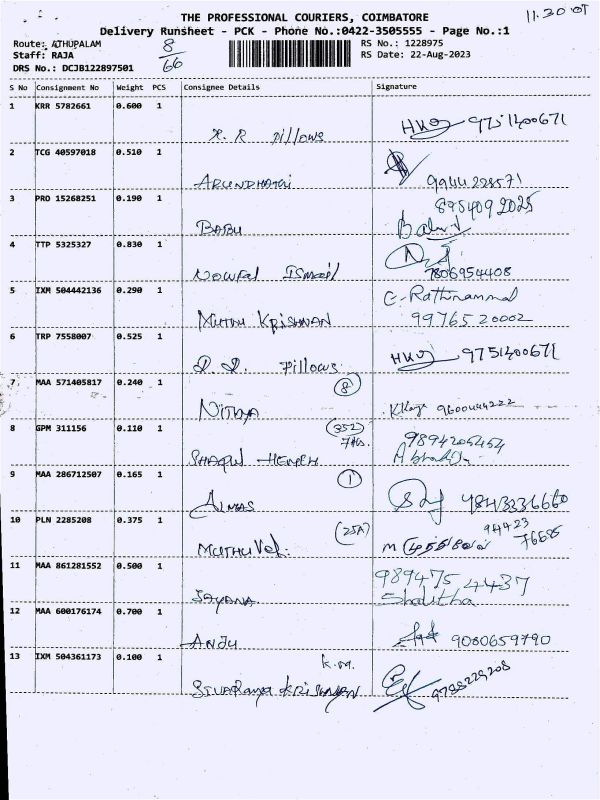 THE PROFESSIONAL COURIERS, COIMBATORE
11.30
Delivery Runsheet - PCK - Phone No.:0422-3505555 - Page No.:1
Route: ATHUPALAM 8/66 RS No.: 1228975
Staff: RAJA RS Date: 22-Aug-2023
DRS No.: DCJB122897501
S No Consignment No Weight PCS Consignee Details Signature
1 KRR 5782661 0.600 1
Pillows 9751400671
2 TCG 40597018 0.510 1
ARUNDHATHI 9944228571
3 PRO 15268251 0.190 1 8754092025
BABU
4 TTP 5325327 0.830 1
NOWFAL ISMAIL 7806954408
5 IXM 504442136 0.290 1 C-Rathinammal
MUTHU KRISHNAN 9976520002
6 TRP 7558007 0.525 1
Pillows 9751400671
7 MAA 571405817 0.240 1 8
NITHYA 9600444222
8 GPM 311156 0.110 1 352 9894206454
SHAQUL HEMEH
9 MAA 286712507 0.165 1 1
ALMAS
10 PLN 2285208 0.375 1 25A 94423
MUTHUVEL 76685
11 MAA 861281552 0.500 1 9894754437
SAYANA Shalitha
12 MAA 600176174 0.700 1
ANJU 9080659790
13 IXM 504361173 0.100 1 K.M.
SIVARAMA KRISHNAN 9788229208